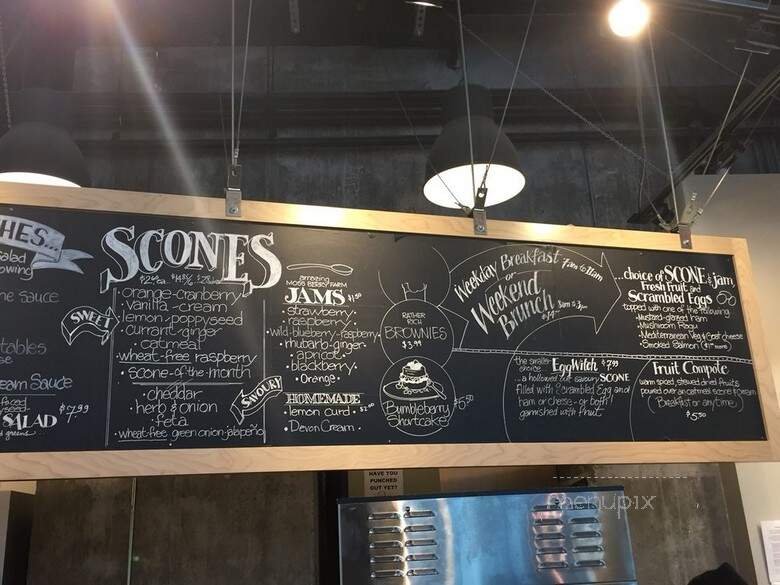 HES...
Salad
owing
ne Sauce
tables
se
eam Sauce
SALAD $7.99
d greens
SCONES
SWEET
• orange-cranberry
• vanilla-cream
• lemon-poppyseed
• currant-ginger
• oatmeal
wheat-free raspberry
• scone-of-the-month
SAVOURY
cheddar
herb & onion
feta
wheat-free green onion-jalapeño
amazing
MOSS BERRY FARM
JAMS $1.50
• strawberry •
• raspberry •
• wild-blueberry-raspberry
• rhubarb-ginger •
• apricot •
• blackberry •
• Orange •
HOMEMADE
• lemon curd • $2.50
• Devon Cream •
RATHER
RICH
BROWNIES
$3.99
Bumbleberry
Shortcake
$6.50
Weekday Breakfast 7am to 11am
or
Weekend
Brunch 8am to 3pm
$14
the smaller
choice EggWitch $7.99
...a hollowed out savoury SCONE
filled with Scrambled Egg and
ham or cheese - or both!
garnished with fruit
...choice of SCONE & jam,
Fresh Fruit and
Scrambled Eggs
topped with one of the following
• Mustard-glazed ham
• Mushroom Ragu
• Mediterranean Veg & Goat cheese
• Smoked Salmon
Fruit Compote
warm spiced, stewed dried fruits
poured over an oatmeal scone & cream
(Breakfast or anytime)
$5.50
HAVE YOU
PUNCHED
OUT YET?
menupix